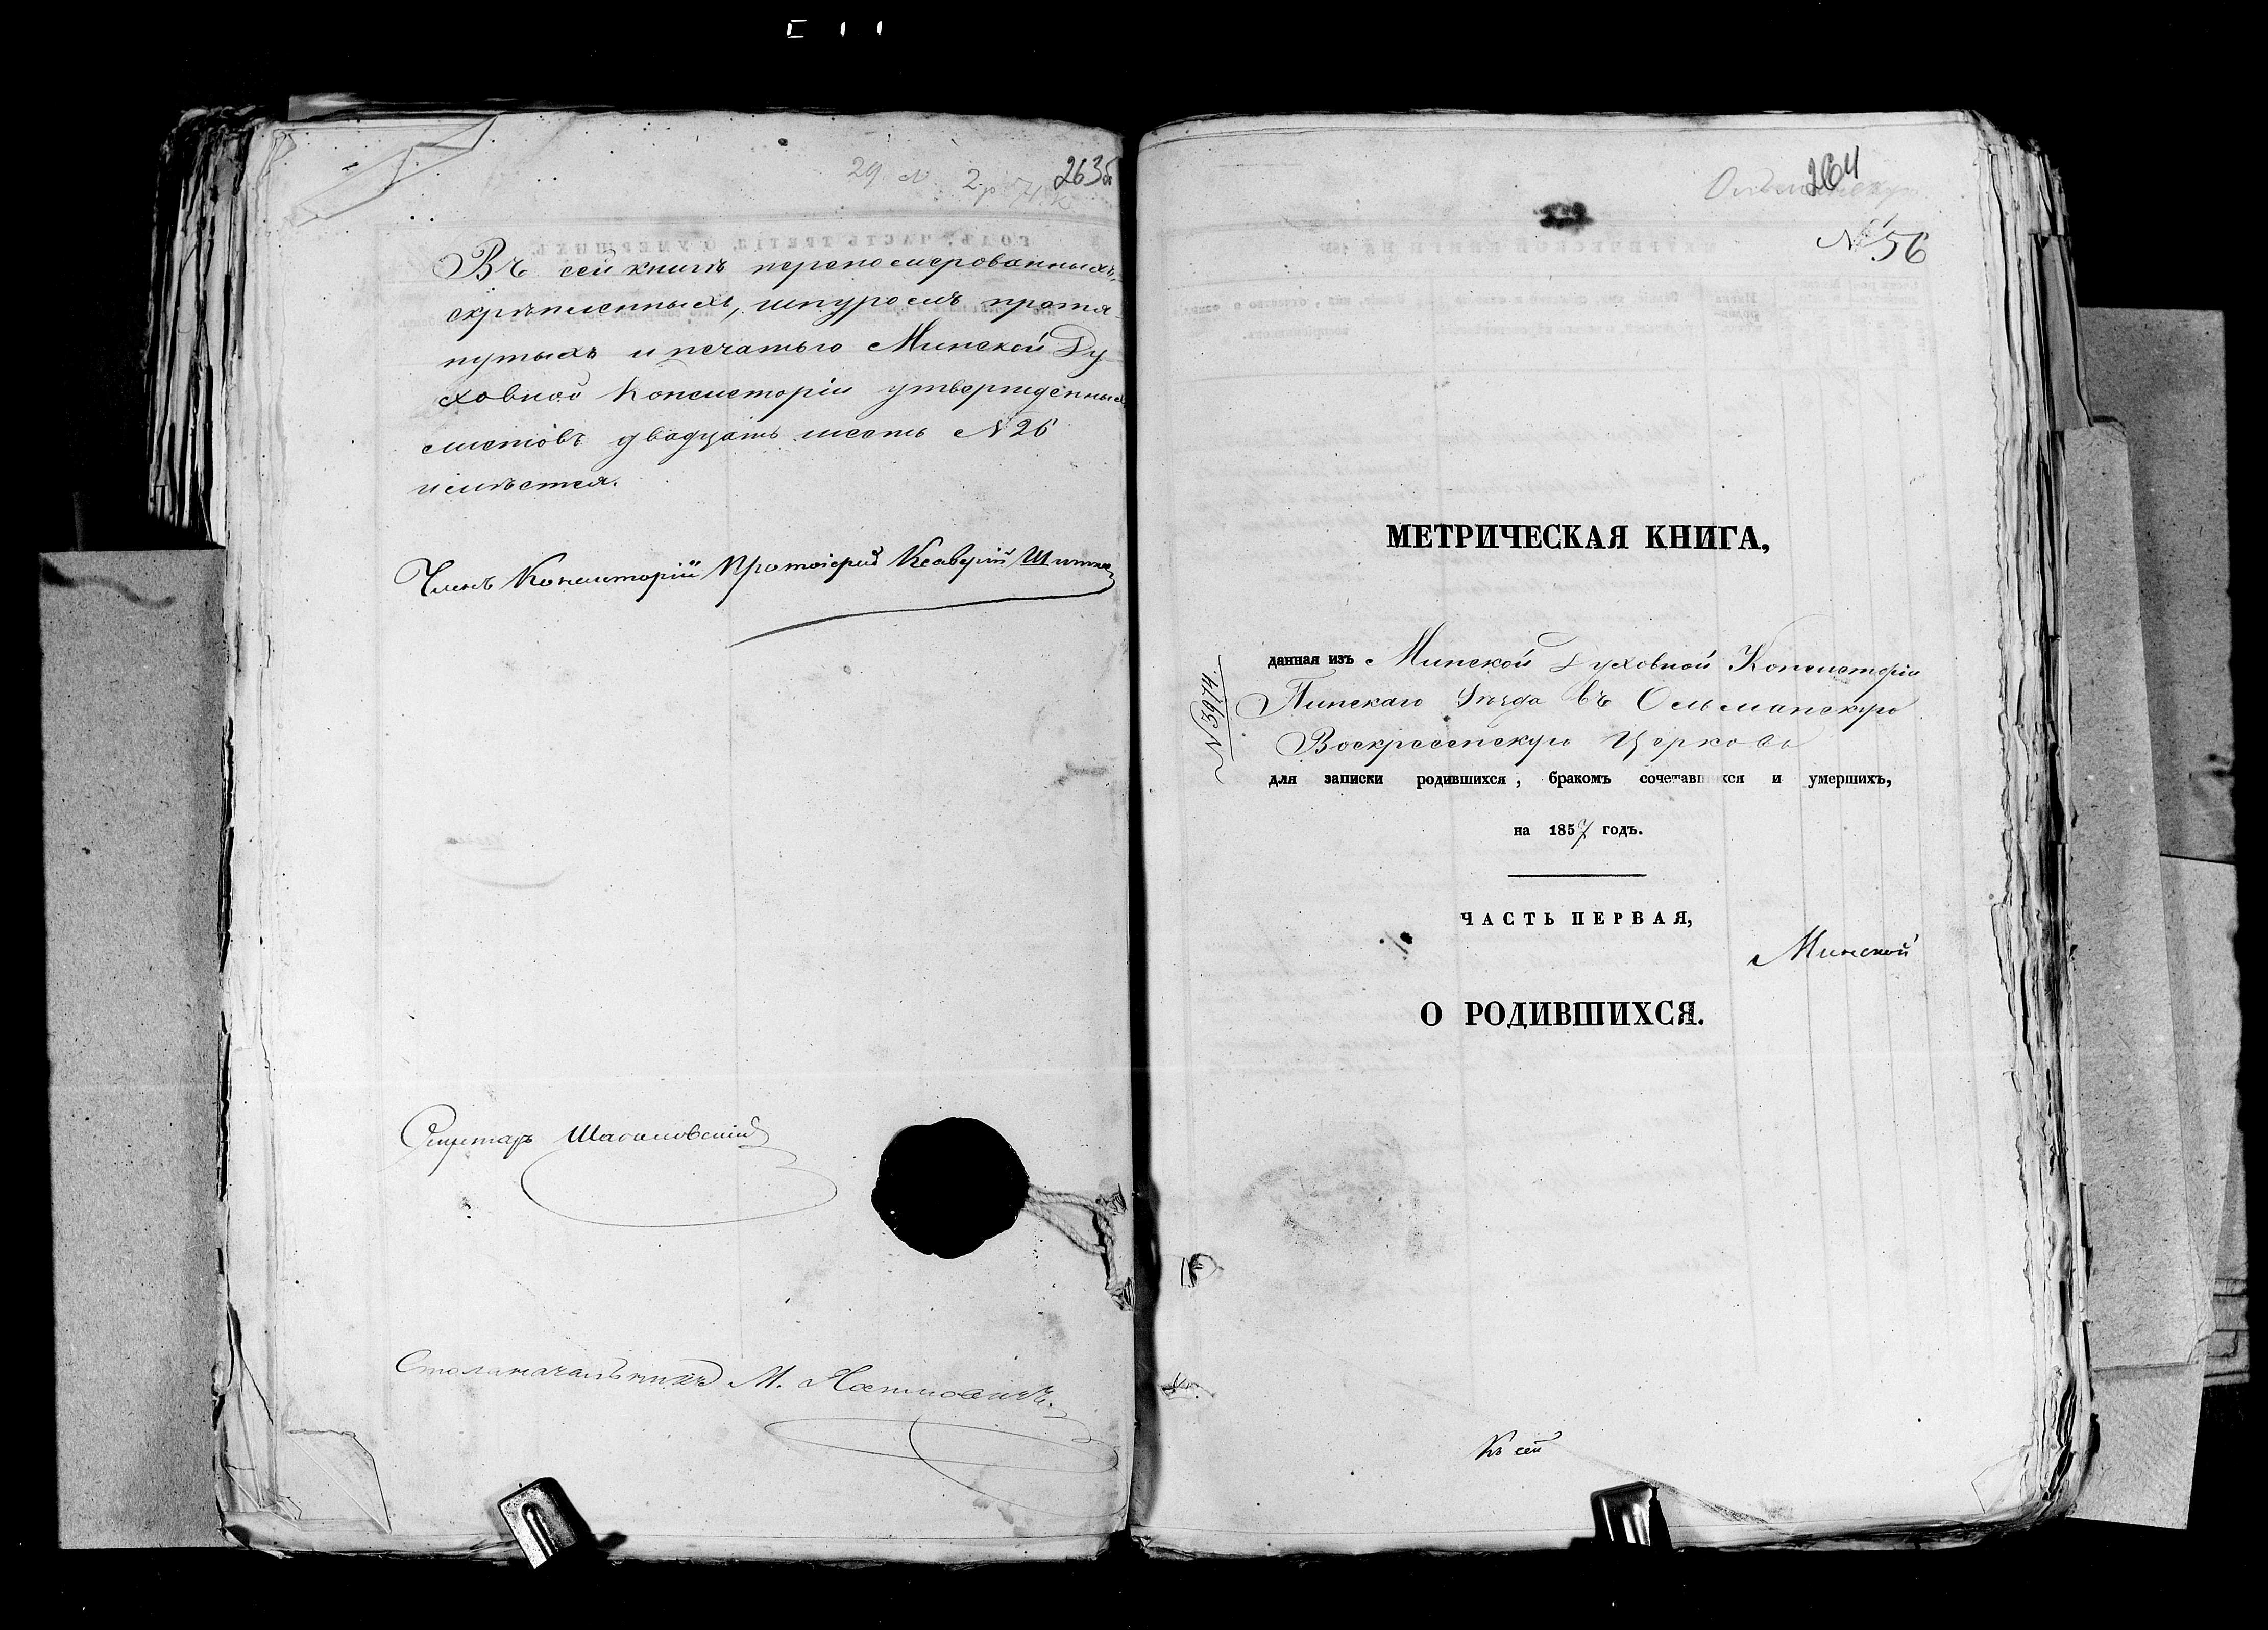 263об
Въ сей книгѣ перепомерованныхъ,
скрѣпленныхъ, шнуромъ протя-
нутыхъ и печатью Минской Ду-
ховной Консисторіи утвержденныхъ
листовъ двадцать шесть № 26
имѣется.
Членъ Консисторіи Протоіерей Ксаверій
Секретарь
Столоначальникъ М.
264
№ 56
МЕТРИЧЕСКАЯ КНИГА,
данная изъ Минской Духовной Консисторіи
Пинскаго Уѣзда въ Ольманскую
Воскресенскую Церковь
№ 5974.
для записки родившихся, бракомъ сочетавшихся и умершихъ,
на 1857 годъ.
ЧАСТЬ ПЕРВАЯ,
Минской
О РОДИВШИХСЯ.
Къ сей